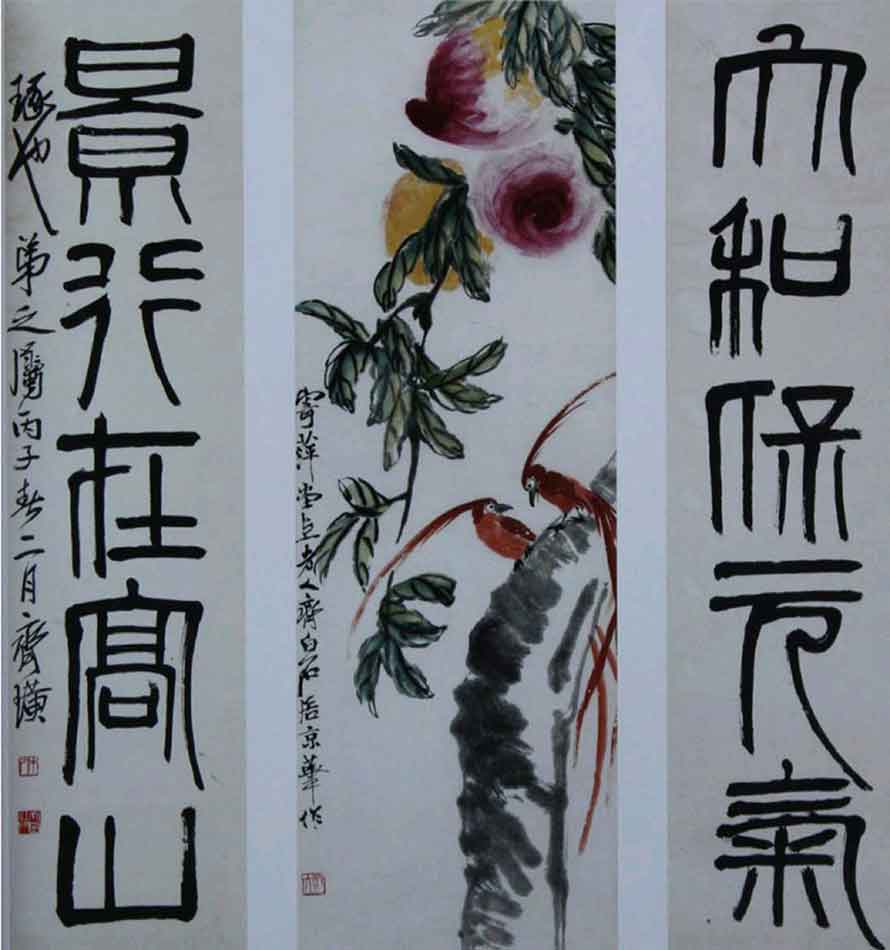 大和保元氣
寄萍堂上老人齊白石京華作
景行在高山
琢也弟之屬丙子春二月齊璜